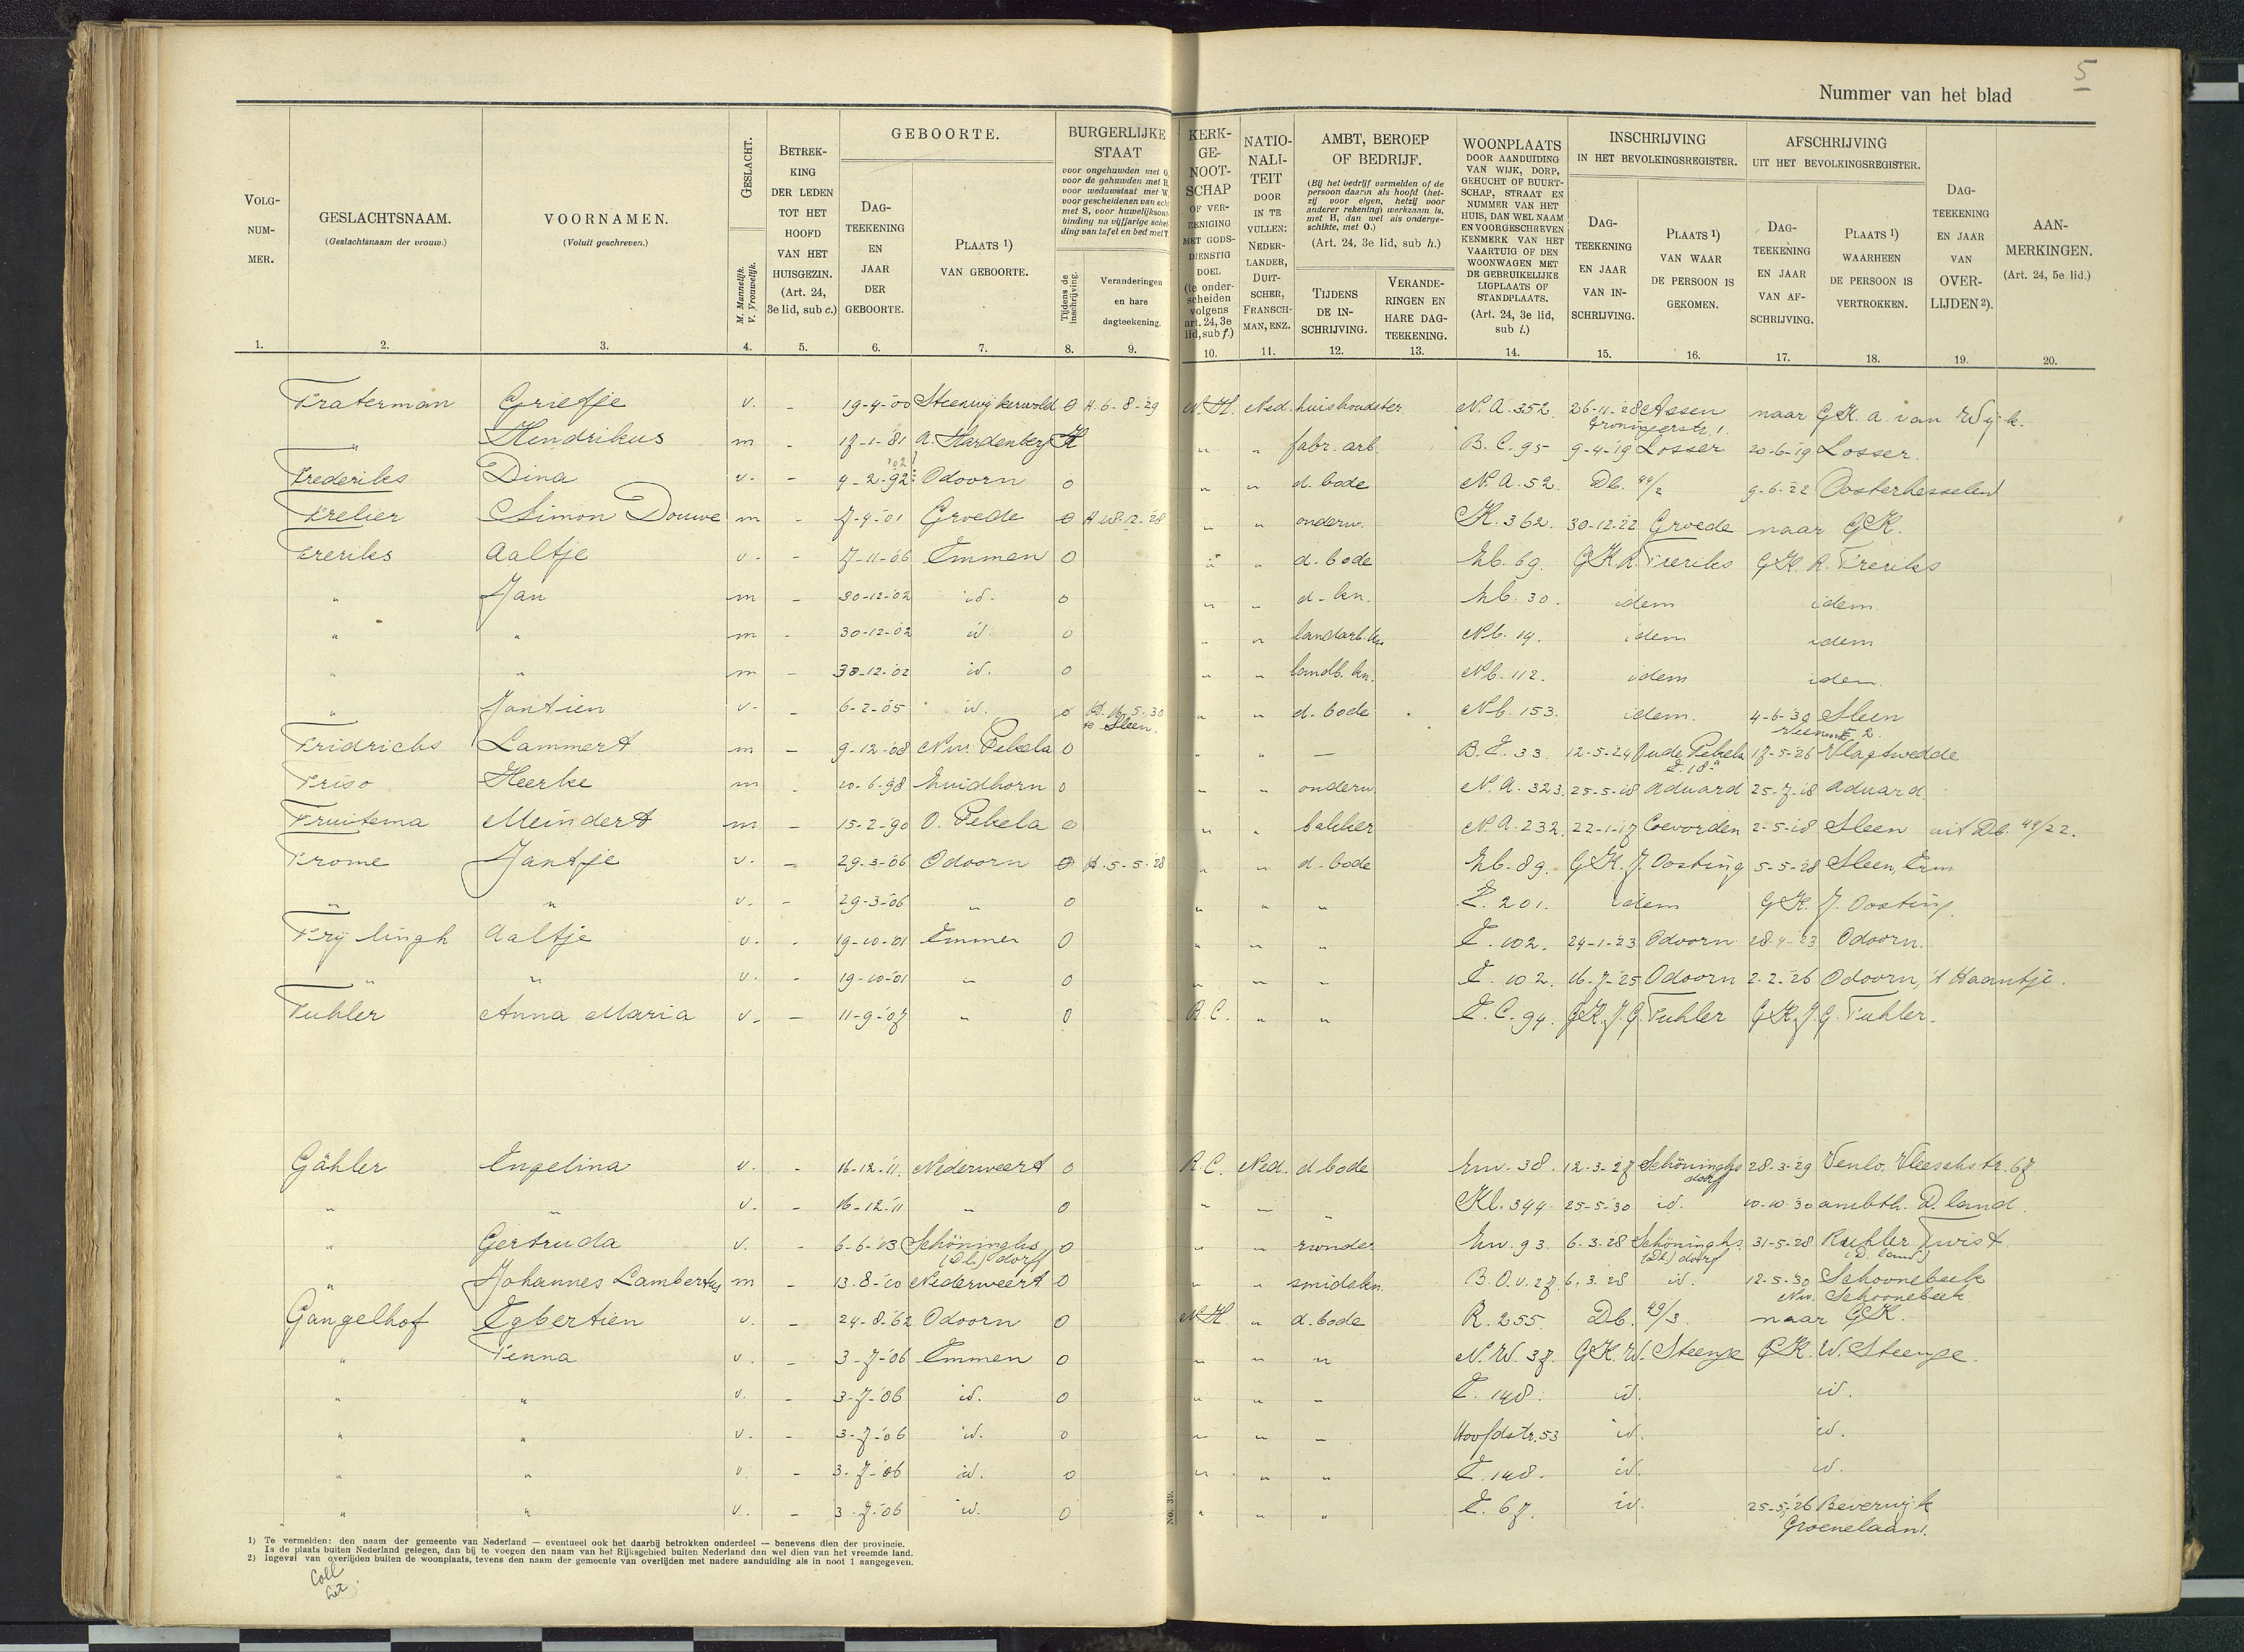 5
Nummer van het blad
VOLG-NUM-MER. GESLACHTSNAAM. (Geslachtsnaam der vrouw.) VOORNAMEN. (Voluit geschreven.) GESLACHT. M. Mannelijk. V. Vrouwelijk. BETREK-KING DER LEDEN TOT HET HOOFD VAN HET HUISGEZIN. (Art. 24, 3e lid, sub c.) GEBOORTE. DAG-TEEKENING EN JAAR DER GEBOORTE. PLAATS 1) VAN GEBOORTE. BURGERLIJKE STAAT voor ongehuwden met O, voor de gehuwden met H, voor weduwstaat met W, voor gescheidenen van echt met S, voor huwelijksont-binding na vijfjarige schei-ding van tafel en bed met T. Tijdens de inschrijving. Veranderingen en hare dagteekening.
KERK-GE-NOOT-SCHAP OF VER-EENIGING MET GODS-DIENSTIG DOEL (te onder-scheiden volgens art. 24, 3e lid, sub f.) NATIO-NALI-TEIT DOOR IN TE VULLEN: NEDER-LANDER, DUIT-SCHER, FRANSCH-MAN, ENZ. AMBT, BEROEP OF BEDRIJF. (Bij het bedrijf vermelden of de persoon daarin als hoofd (het-zij voor eigen, hetzij voor anderer rekening) werkzaam is, met H, dan wel als onderge-schikte, met O.) (Art. 24, 3e lid, sub h.) TIJDENS DE IN-SCHRIJVING. VERANDE-RINGEN EN HARE DAG-TEEKENING. WOONPLAATS DOOR AANDUIDING VAN WIJK, DORP, GEHUCHT OF BUURT-SCHAP, STRAAT EN NUMMER VAN HET HUIS, DAN WEL NAAM EN VOORGESCHREVEN KENMERK VAN HET VAARTUIG OF DEN WOONWAGEN MET DE GEBRUIKELIJKE LIGPLAATS OF STANDPLAATS. (Art. 24, 3e lid, sub i.) INSCHRIJVING IN HET BEVOLKINGSREGISTER. DAG-TEEKENING EN JAAR VAN IN-SCHRIJVING. PLAATS 1) VAN WAAR DE PERSOON IS GEKOMEN. AFSCHRIJVING UIT HET BEVOLKINGSREGISTER. DAG-TEEKENING EN JAAR VAN AF-SCHRIJVING. PLAATS 1) WAARHEEN DE PERSOON IS VERTROKKEN. DAG-TEEKENING EN JAAR VAN OVER-LIJDEN 2). AAN-MERKINGEN. (Art. 24, 5e lid.)
1. 2. 3. 4. 5. 6. 7. 8. 9. 10. 11. 12. 13. 14. 15. 16. 17. 18. 19. 20.
Fraterman Grietje v. - 19-4-'00 Steenwijkerwold O H. 6-8-'29 N.H. Ned. huishoudster N.A. 352 26-11-'28 Assen Groningerstr. 1. naar GK. A. van Wijk.
" Hendrikus m - 17-1-'81 A. Hardenberg H " " fabr. arb. B.C. 95 9-4-'19 Losser 20-6-'19 Losser.
Frederiks Dina v. - 4-2-92 '02? Odoorn O " " d. bode N.A. 52. Db. 44/2 9-6-'22 Oosterhesselen
Frelier Simon Douwe m - 7-9-'01 Groede O H. 18-12-'28 " " onderw. K. 362. 30-12-'22 Groede naar GK.
Freriks Aaltje v. - 7-11-'06 Emmen O " " d. bode Zb. 69. GK R. Freriks GK. R. Freriks
" Jan m - 30-12-'02 id. O " " d. kn. Zb. 30. idem idem.
" " m - 30-12-'02 id. O " " landarb. kn. Nb. 19. idem idem
" " m - 30-12-'02 id. O " " landb. kn. Nb. 112. idem idem.
" Jantien v. - 6-2-'05 id. O H. 16-5-30 te Sleen. " " d. bode Nb. 153. idem. 4-6-'30 Sleen
Fridrichs Lammert m - 9-12-'08 Nw. Pekela O " " - B.E. 33. 12-5-24 Oude Pekela E. 18a 17-5-'26 Vlagtwedde
Friso Heerke m - 10-6-'98 Zuidhorn O " " onderw. N.A. 323. 25-5-'18 Aduard 25-7-'18 Aduard.
Fruitema Meindert m - 15-2-'90 O. Pekela O " " bakker N.A. 232. 22-1-'17 Coevorden 2-5-'18 Sleen uit Db. 44/22.
Frome Jantje v. - 29-3-'06 Odoorn O H. 5-5-'28 " " d. bode Zb. 89. GK. J. Oosting 5-5-'28 Sleen, Erm
" " v. - 29-3-'06 " O " " " E. 201. idem GK. J. Oosting.
Frijlingh Aaltje v. - 19-10-'01 Emmen O " " " E. 102. 24-1-'23 Odoorn 28-4-'23 Odoorn.
" " v. - 19-10-'01 " O " " " E. 102. 16-7-'25 Odoorn 2-2-'26 Odoorn, 't Haantje.
Fuhler Anna Maria v. - 11-9-'07 " O R.C. " " E.C. 94. GK. J.G. Fuhler GK. J.G. Fuhler.
Gähler Engelina v. - 16-12-'11. Nederweert O R.C. Ned. d. bode Zw. 38. 12-3-'27 Schöninghsdorf 28-3-'29 Venlo, Vleeschstr. 67.
" " v. - 16-12-'11 " O " " " Kl. 394 25-5-'30 id. 10-10-'30 ambth. D.land.
" Gertruda v. - 6-6-'13 Schöninghs (Dl.) dorf O " " zonder Zw. 93. 6-3-'28 Schöninghs (Dl.) dorf 31-5-'28 Ruhler Twist (D. land)
" Johannes Lambertus m - 13-8-'10 Nederweert O " " smidskn. B.O.v. 27. 6-3-'28 id. 12-5-'30 Schoonebeek Nw. Schoonebeek
Gangelhof Egbertien v. - 24-8-'62 Odoorn O N.H. " d. bode R. 255. Db. 49/3. naar GK.
" Fenna v. - 3-7-'06 Emmen O " " " N.W. 37. GK. W. Steenge GK. W. Steenge.
" " v. - 3-7-'06 id. O " " " E. 148. id. id.
" " v. - 3-7-'06 id. O " " " Hoofdstr. 53 id. id.
" " v. - 3-7-'06 id. O " " " E. 148. id. id.
" " v. - 3-7-'06 id. O " " " E. 67. id. 25-5-'26 Beverwijk Groenelaan.
No. 39.
1) Te vermelden: den naam der gemeente van Nederland — eventueel ook het daarbij betrokken onderdeel — benevens dien der provincie.
Is de plaats buiten Nederland gelegen, dan bij te voegen den naam van het Rijksgebied buiten Nederland dan wel dien van het vreemde land.
2) Ingeval van overlijden buiten de woonplaats, tevens den naam der gemeente van overlijden met nadere aanduiding als in noot 1 aangegeven.
Coll